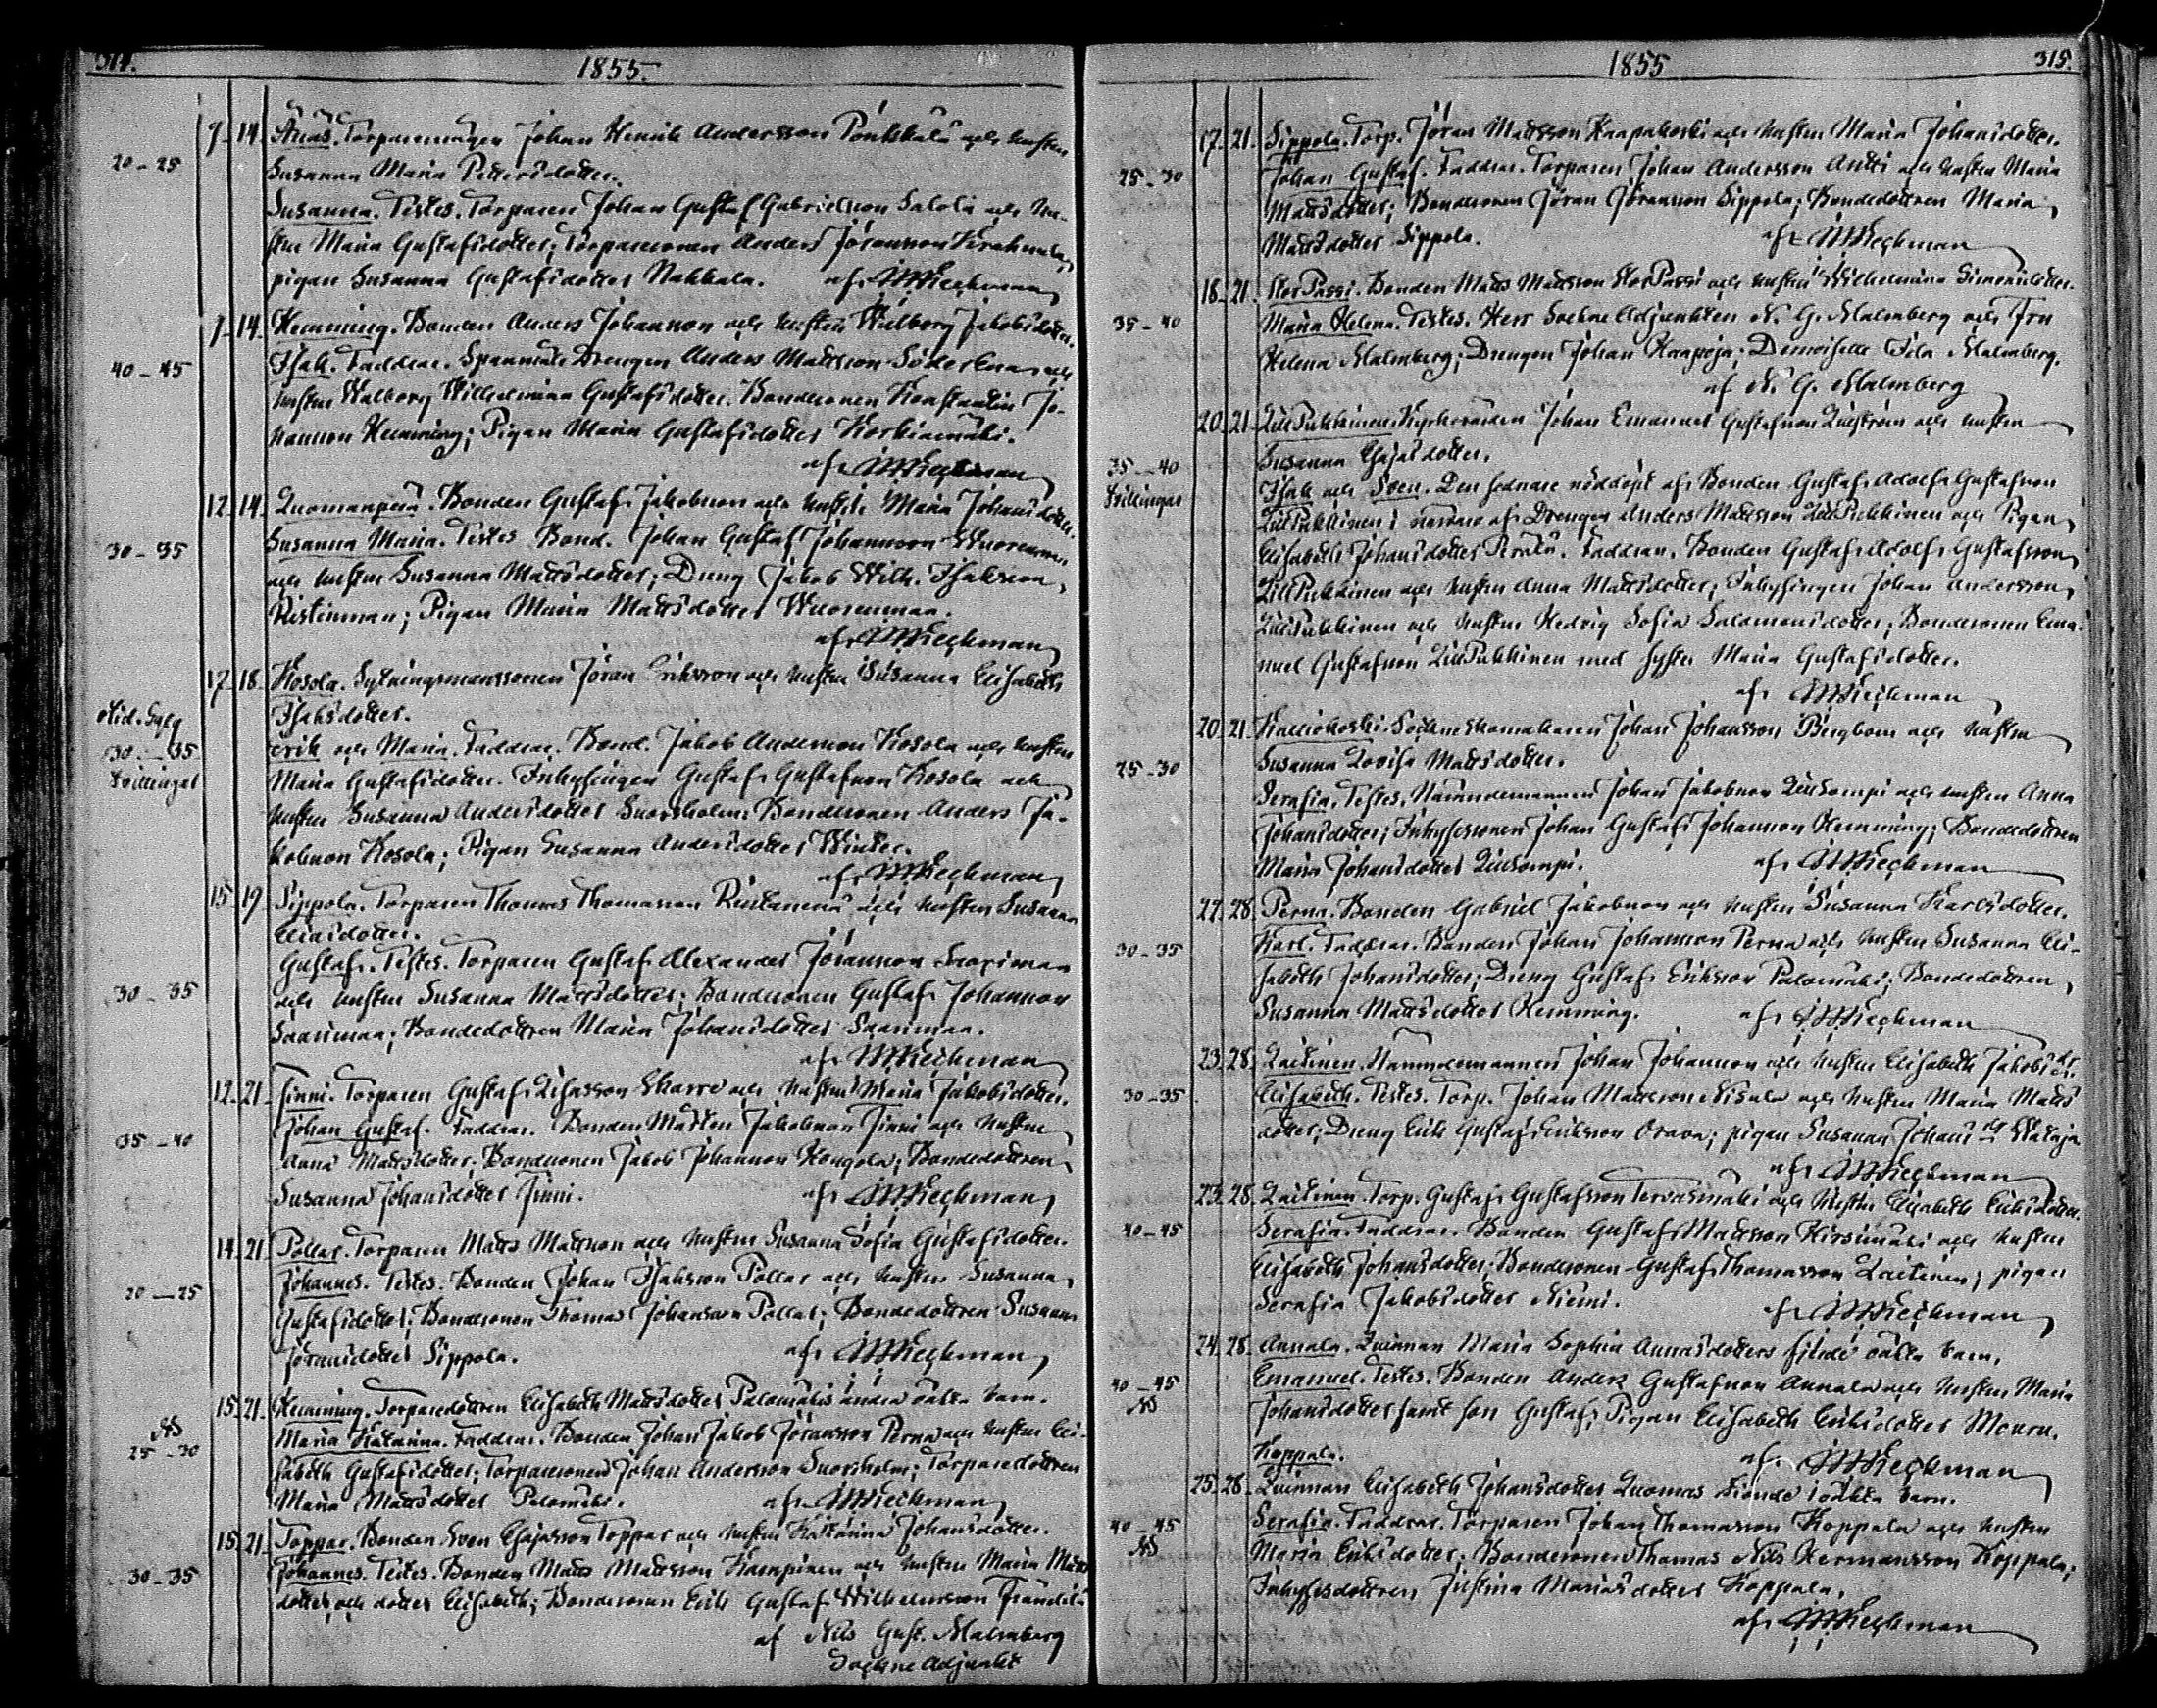 314.
1855.
7 14. Änäs. Torparemågen Johan Henrik Andersson Pönkkälä och hustru
20-25
Susanna Maria Pettersdotter.
Susanna. Testes. Torparen Johan Gustaf Gabrielsson Salola och hu-
stru Maria Gustafsdotter; Torparesonen Anders Jöransson
pigan Susanna Gustafsdotter Nakkala. af
7 14. Hemming. Bonden Anders Johansson och hustru Walborg Jakobsdotter.
40-45
Isak. Faddrar. Spannmåls Drengen Anders Mattsson Söderlund och
hustru Walborg Wilhelmina Gustafsdotter. Bondesonen Konstantin Jo-
hansson Hemming; Pigan Maria Gustafsdotter Koskiemäki.
af
12 14. Luomanperä. Bonden Gustaf Jakobsson och hustru Maria Johansdotter.
30-35
Susanna Maria. Testes Bond. Johan Gustaf Johansson Wuorenmaa
och hustru Susanna Mattsdotter; Dreng Jakob Wilh. Isaksson
Ristinmaa; Pigan Maria Mattsdotter Wuorenmaa.
af
17 18. Kosola. Sytningsmanssonen Jöran Eriksson och hustru Susanna Elisabeth
Isaksdotter.
30-35
Tvillingar
Erik och Maria. Faddrar. Bond. Jakob Andersson Kosola och hustru
Maria Gustafsdotter. Inhysingen Gustaf Gustafsson Kosola och
hustru Susanna Andersdotter Snorsholm; Bondesonen Anders Ja-
kobsson Kosola; Pigan Susanna Andersdotter Winter.
af
15 19 Sippola. Torparen Thomas Thomasson Ristanenä och hustru Susanna
Eliasdotter.
Gustaf. Testes. Torparen Gustaf Alexander Jöransson Saarimaa
30-35
och hustru Susanna Mattsdotter; Bondesonen Gustaf Johansson
Saarimaa; Bondedottren Maria Johansdotter Saarimaa.
af
12 21. Jinni. Torparen Gustaf Skarre och hustru Maria Jakobsdotter.
Johan Gustaf. Faddrar. Bonden Mårten Jakobsson Jinni och hustru
35-40
Anna Mattsdotter; Bondesonen Jakob Johansson Kongola; Bondedottren
Susanna Johansdotter Jinni. af
14 21. Pollar. Torparen Matts Mattsson och hustru Susanna Sofia Gustafsdotter.
Johannes. Testes. Bonden Johan Isaksson Pollar och hustru Susanna
20-25
Gustafsdotter; Bondesonen Thomas Johansson Pollar; Bondedottren Susanna
Jöransdotter Sippola. af
15. 21. Hemming. Torparedottren Elisabeth Mattsdotter Palomäkis andra oäkta barn.
25-30
Maria Katarina. Faddrar. Bonden Johan Jakob Jöransson Perna och hustru Eli-
sabeth Gustafsdotter; Torparesonen Johan Andersson Snorsholm; Torparedottren
Maria Mattsdotter Palomäki. af
15. 21. Toppar. Bonden Sven Esajasson Toppar och hustru Katarina Johansdotter.
30-35
Johannes. Testes. Bonden Matts Mattsson Kamppinen och hustru Maria Matts
dotter och dotter Elisabeth; Bondesonen Erik Gustaf Wilhelmsson Frändilä
af Nils Gust. Malmberg
Sockne Adjunkt
1855
315.
17. 21. Sippola. Torp. Jöran Mattsson Haapakoski och hustru Maria Johansdotter.
25-30
Johan Gustaf. Faddrar. Torparen Johan Andersson Antti och hustru Maria
Mattsdotter; Bondesonen Jöran Jöransson Sippola; Bondedottren Maria
Mattsdotter Sippola. af
18. 21. StorPassi. Bonden Matts Mattsson StorPassi och hustru Wilhelmina Simonsdotter.
35-40
Maria Helena. Testes. Herr Sockne Adjunkten N. G. Malmberg och Fru
Helena Malmberg; Drengen Johan Haapoja; Demoiselle Ida Malmberg.
af N. G. Malmberg
20. 21. LillPukkinen. Kyrkovärden Johan Emanuel Gustafsson Liljström och hustru
Susanna Esajasdotter.
35-40
Tvillingar
Isak och Sven. Den sednare nöddöpt af Bonden Gustaf Adolf Gustafsson
LillPukkinen i närvaro af Drengen Anders Mattsson LillPukkinen och Pigan
Elisabeth Johansdotter Perälä. Faddrar. Bonden Gustaf Adolf Gustafsson
LillPukkinen och hustru Anna Mattsdotter; Inhysingen Johan Andersson
LillPukkinen och hustru Hedvig Sofia Salomonsdotter; Bondesonen Ema-
nuel Gustafsson LillPukkinen med syster Maria Gustafsdotter.
af
20. 21. Kalliokoski. Sockneskomakaren Johan Johansson Bergbom och hustru
25-30
Susanna Lovisa Mattsdotter.
Serafia. Testes. Nämndemannen Johan Jakobsson Lillkampi och hustru Anna
Johansdotter; Inhysessonen Johan Gustaf Johansson Hemming; Bondedottren
Maria Johansdotter Lillkampi. af
22. 28. Perna. Bonden Gabriel Jakobsson och hustru Susanna Karlsdotter.
30-35
Karl. Faddrar. Bonden Johan Johansson Perna och hustru Susanna Eli-
sabeth Johansdotter; Dreng Gustaf Eriksson Palomäki; Bondedottren
Susanna Mattsdotter Hemming. af
23. 28. Laitinen. Nämndemannen Johan Johansson och hustru Elisabeth Jakobsdr.
30-35
Elisabeth. Testes. Torp. Johan Mattsson Nisula och hustru Maria Matts
dotter; Dreng Erik Gustaf Eriksson Orava; pigan Susanna Johans dr Wataja
af
23. 28. Laitinen. Torp. Gustaf Gustafsson Tervasmäki och hustru Elisabeth Eriksdotter.
40-45
Serafia. Faddrar. Bonden Gustaf Mattsson Hirsimäki och hustru
Elisabeth Johansdotter; Bondesonen Gustaf Thomasson Laitinen; pigan
Serafia Jakobsdotter Niemi. af
24. 28. Annala. Qvinnan Maria Sophia Annasdotters fjerde oäkta barn.
40-45
Emanuel. Testes. Bonden Anders Gustafsson Annala och hustru Maria
Johansdotter samt son Gustaf; Pigan Elisabeth Eriksdotter
af
Koppala.
25. 28. Qvinnan Elisabeth Johansdotter Luomas oäkta barn.
40-45
Serafia. Faddrar. Torparen Johan Thomasson Koppala och hustru
Maria Eriksdotter; Bondesonen Thomas Nils Hermansson Koppala;
Inhysesdottren Justina Mariasdotter Koppala.
af